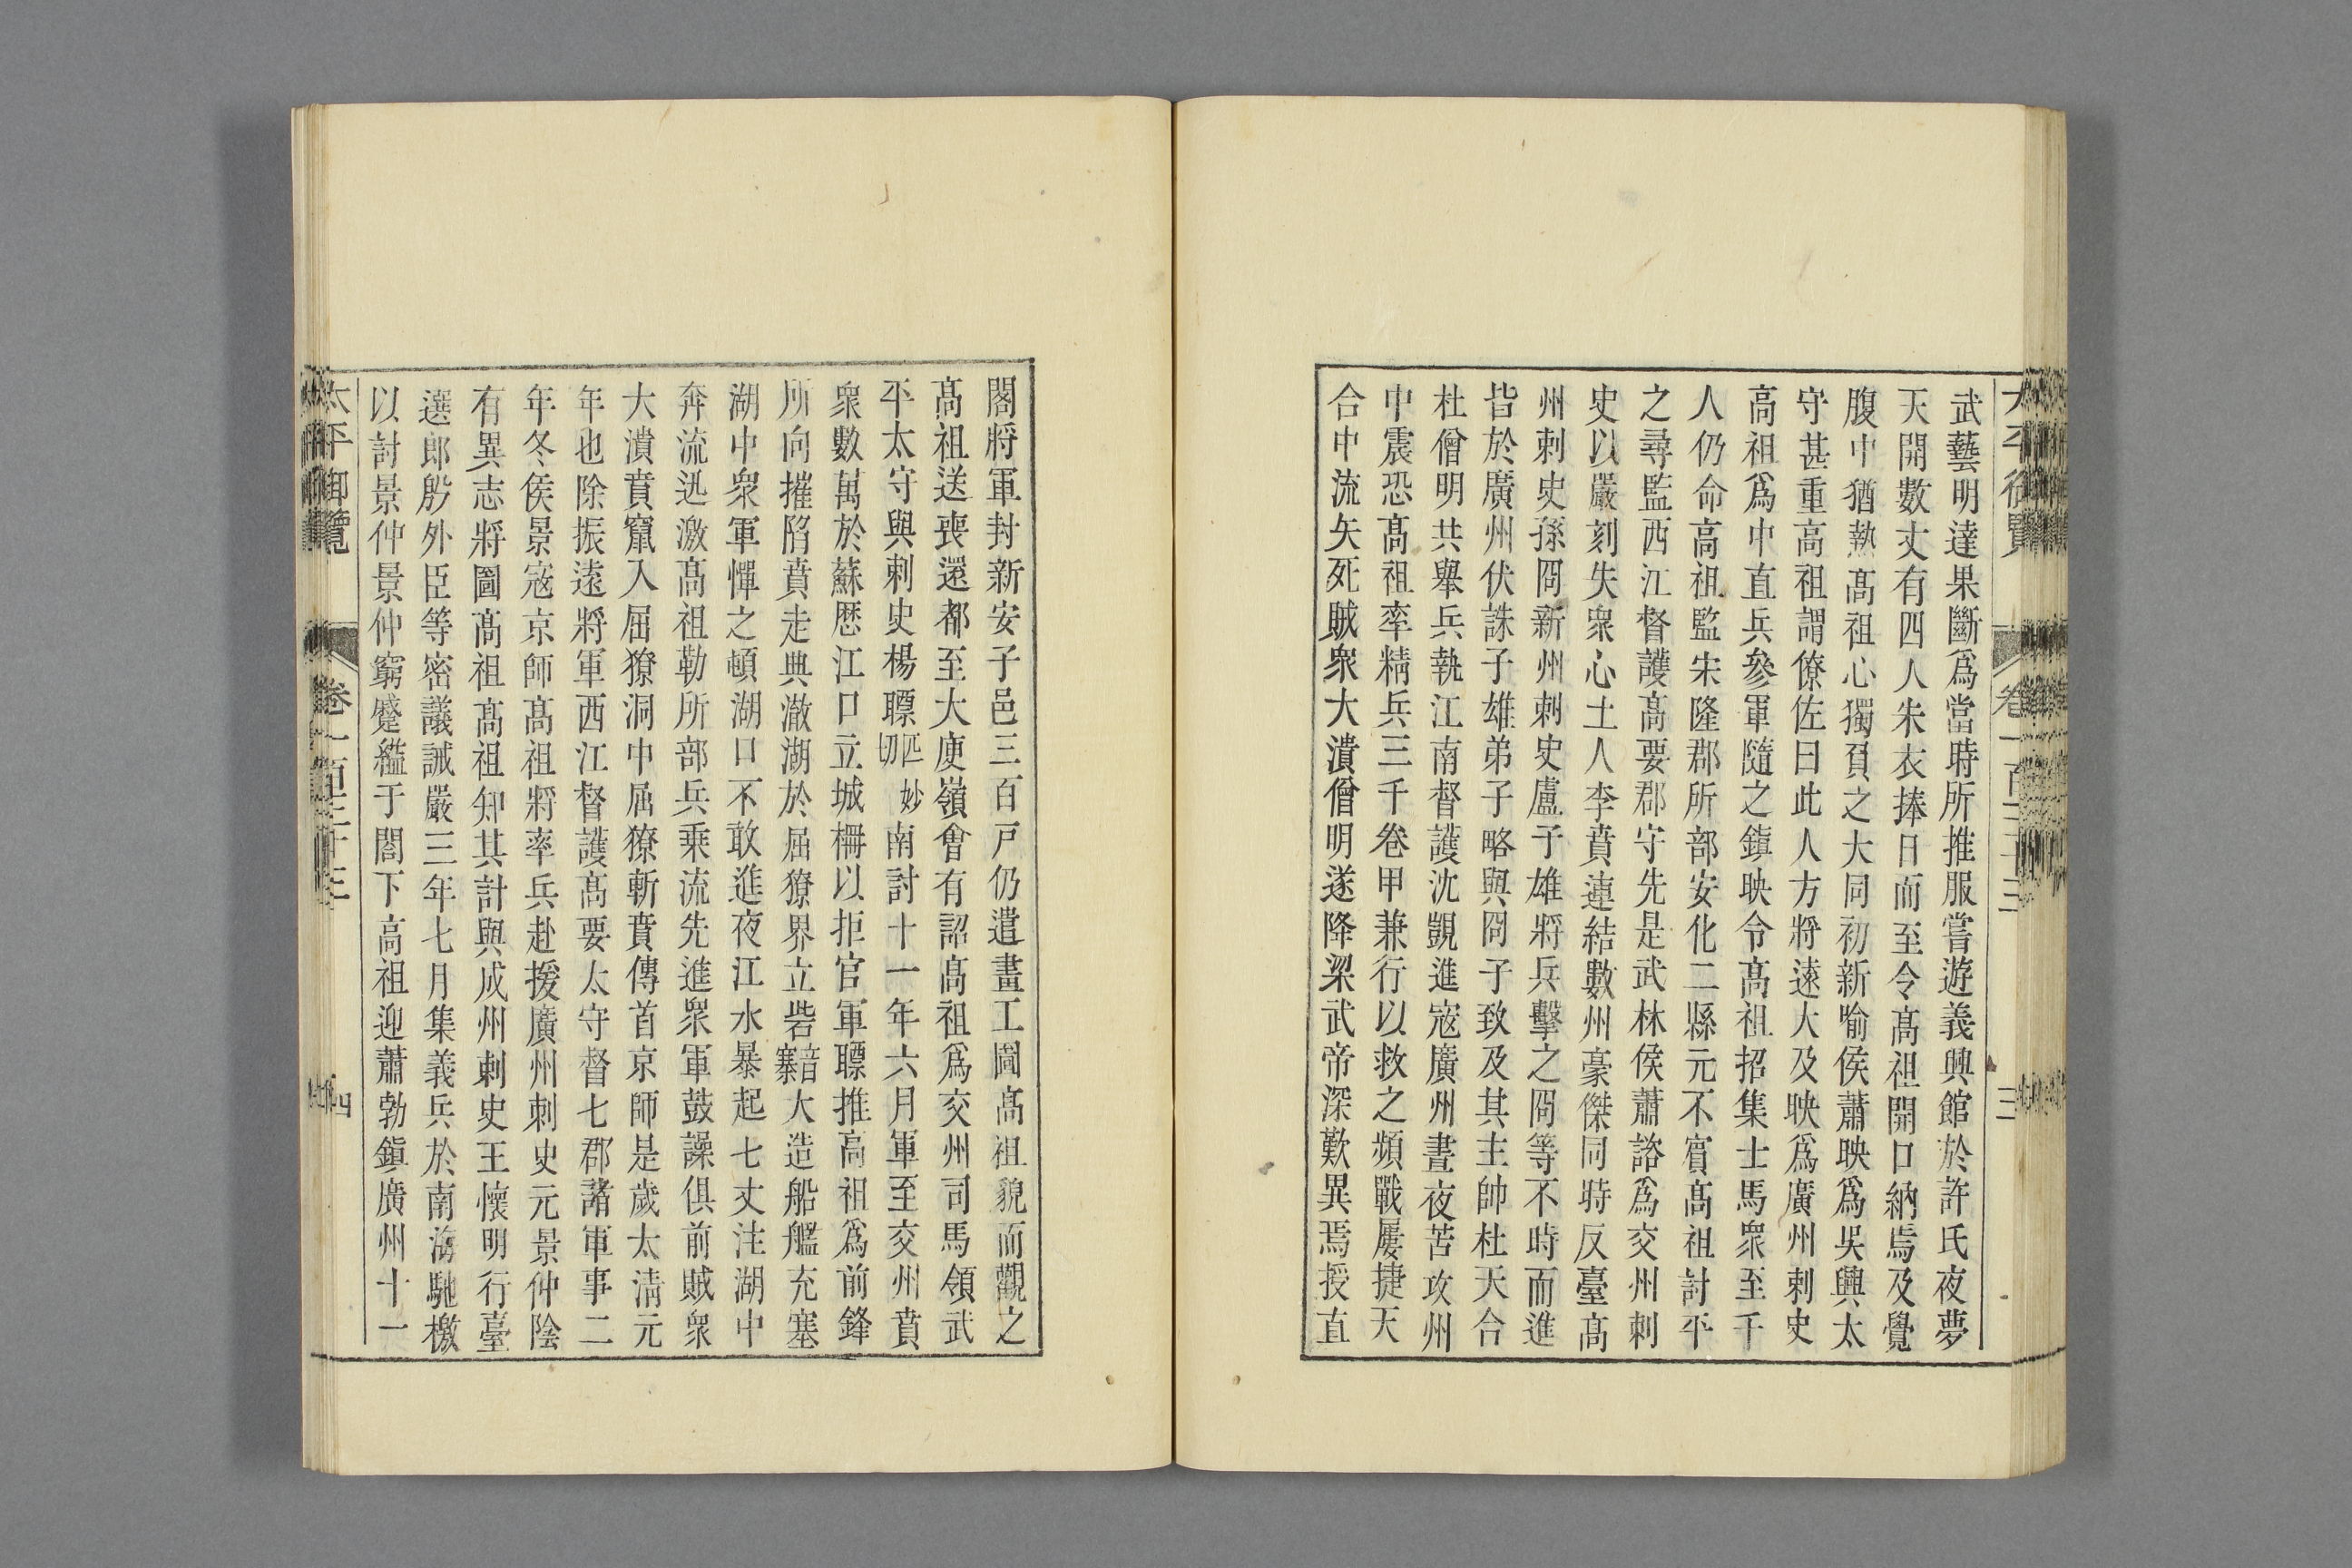 武藝明達果斷爲當時所推服嘗遊義興館於許氏夜夢
天開數丈有四人朱衣捧日而至令髙祖開口納焉及覺
腹中猶熱髙祖心獨負之大同初新喻侯蕭映爲吳興太
守甚重高祖謂僚佐曰此人方將遠大及映爲廣州刺史
高祖爲中直兵參軍隨之鎮映令髙祖招集士馬衆至千
人仍命高祖監宋隆郡所部安化二縣元不賓髙祖討平
之尋監西江督護髙要郡守先是武林侯蕭諮爲交州刺
史以嚴刻失衆心土人李賁連結數州豪傑同時反臺髙
州刺史孫冏新州刺史盧子雄將兵擊之冏等不時而進
皆於廣州伏誅子雄弟子略與冏子致及其主帥杜天合
杜僧明共舉兵執江南督護沈顗進寇廣州晝夜苦攻州
中震恐髙祖率精兵三千卷甲兼行以救之頻戰屢捷天
合中流矢死賊衆大潰僧明遂降梁武帝深歎異焉授直
閣將軍封新安子邑三百戸仍遣畫工圖髙祖貌而觀之
髙祖送喪還都至大庾嶺會有詔髙祖爲交州司馬領武
平太守與刺史楊瞟匹妙切南討十一年六月軍至交州賁
衆數萬於蘇歴江口立城柵以拒官軍瞟推高祖爲前鋒
所向摧陷賁走典澈湖於屈獠界立砦音寨大造船艦充塞
湖中衆軍憚之頓湖口不敢進夜江水暴起七丈注湖中
奔流迅激髙祖勒所部兵乗流先進衆軍鼓譟俱前賊衆
大潰賁竄入屈獠洞中屈獠斬賁傳首京師是歲太清元
年也除振遠將軍西江督護髙要太守督七郡諸軍事二
年冬侯景寇京師髙祖將率兵赴援廣州刺史元景仲陰
有異志將圖髙祖髙祖知其計與成州刺史王懷明行臺
選郎殷外臣等密議誡嚴三年七月集義兵於南海馳檄
以討景仲景仲窮蹙縊于閤下高祖迎蕭勃鎮廣州十一
太平御覽
卷一百三十三
四